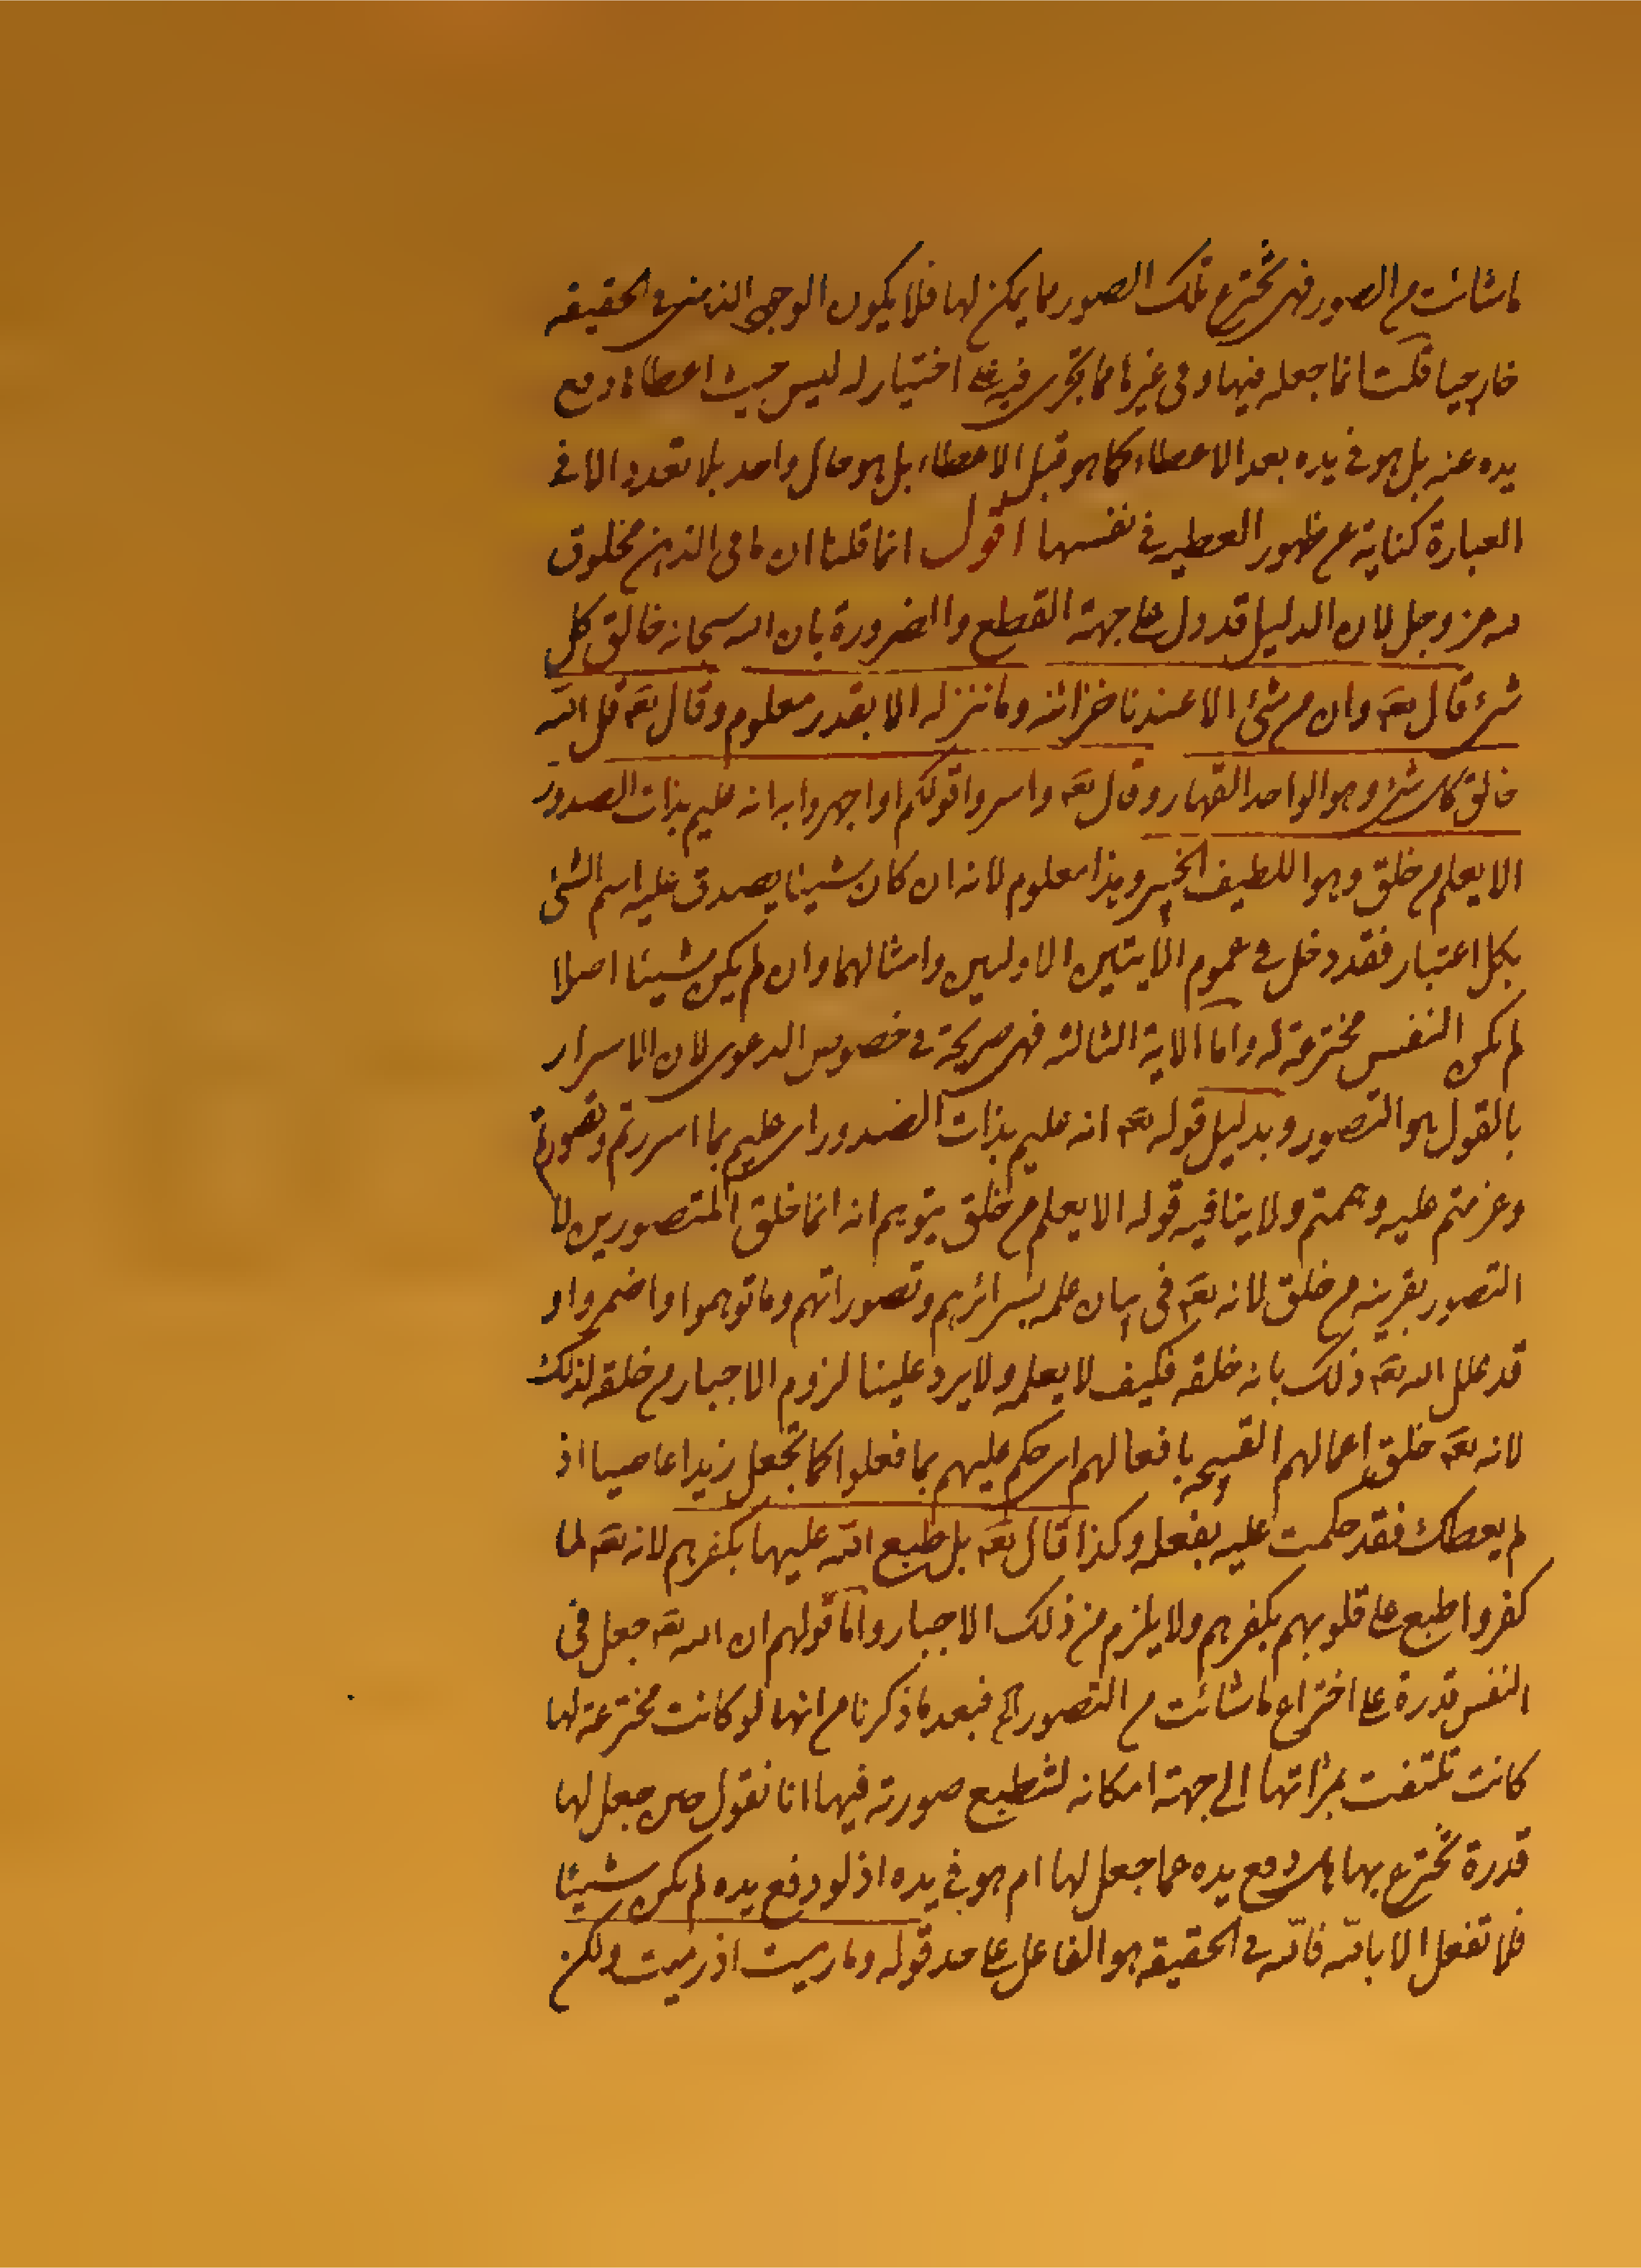 ما شائت من الصور فهي تخترع تلك الصور مما يمكن لها فلا يكون الوجود الذهني في الحقيقه
خارجيا قلت انما جعله فيها وفي غيرها مما تجري فيه على اختيار له ليس حيث اعطاها ورفع
يده عنه بل هو في يده بعد الاعطاء كما هو قبل الاعطاء بل هو حال واحد بلا تعدد الا في
العبارة كناية عن ظهور العطيه في نفسها اقول انما قلنا ان ما في الذهن مخلوق
لله عز وجل لان الدليل قد دل على جهة القطع والضرورة بان الله سبحانه خالق كل
شئ قال تعه وان من شئ الا عندنا خزائنه وما ننزله الا بقدر معلوم وقال تعه قل الله
خالق كل شئ وهو الواحد القهار وقال تعه واسروا قولكم او اجهروا به انه عليم بذات الصدور
الا يعلم من خلق وهو اللطيف الخبير وهذا معلوم لانه ان كان شيئا يصدق عليه اسم الشئ
بكل اعتبار فقد دخل في عموم الآيتين الاوليين وامثالهما وان لم يكن شيئا اصلا
لم يكن النفس مخترعة له واما الآية الثالثه فهي صريحة في خصوص الدعوى لان الاسرار
بالقول هو التصور وبدليل قوله تعه انه عليم بذات الصدور اي عليم بما اسررتم وتصورتم
وعزمتم عليه وهممتم ولا ينافيه قوله الا يعلم من خلق بتوهم انه انما خلق المتصورين لا
التصور بقرينه من خلق لانه تعه في بيان علمه بسرائرهم وتصوراتهم وما توهموا واضمروا و
قد علل الله تعه ذلك بانه خلقه فكيف لا يعلمه ولا يرد علينا لزوم الاجبار من خلقه لذلك
لانه تعه خلق اعمالهم القبيحه بافعالهم اي حكم عليهم بما فعلوا كما تجعل زيدا عاصيا اذ
لم يعطك فقد حكمت عليه بفعله وكذا قال تعه بل طبع الله عليها بكفرهم لانه تعه لما
كفروا طبع على قلوبهم بكفرهم ولا يلزم من ذلك الاجبار واما قولهم ان الله تعه جعل في
النفس قدرة على اختراع ما شائت من التصور الخ فبعد ما ذكرنا من انها لو كانت مخترعة لها
كانت تلتفت بمرآتها الى جهة امكانه لتنطبع صورته فيها انا نقول حين جعل لها
قدرة تخترع بها هل رفع يده عما جعل لها ام هو في يده اذ لو رفع يده لم يكن شيئا
فلا تفعل الا بالله فالله في الحقيقه هو الفاعل على حد قوله وما رميت اذ رميت ولكن